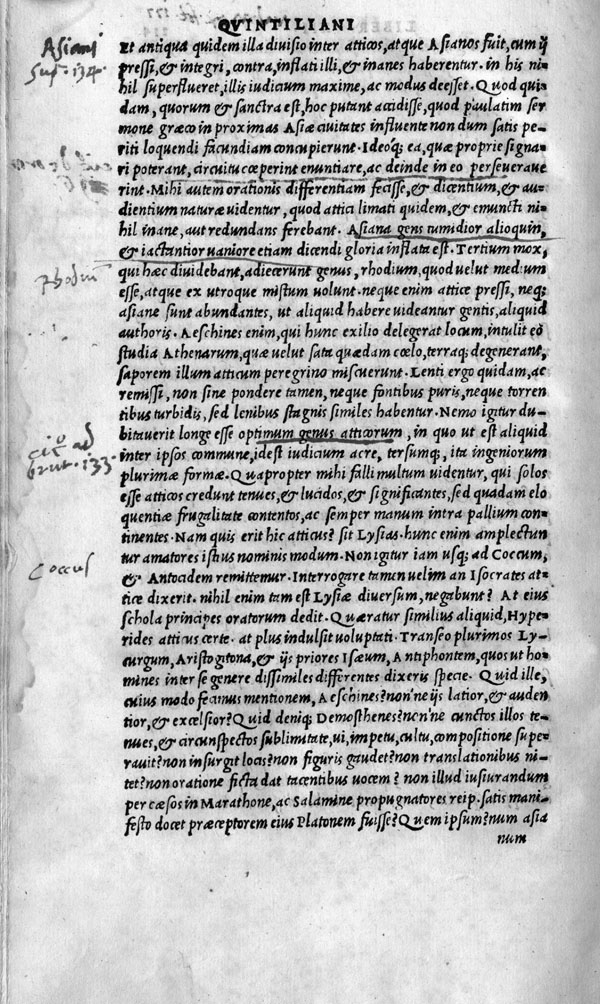 QVINTILIANI
Asiani
Et antiqua quidem illa diuisio inter atticos, atque Asianos fuit, cum ij
pressi, & integri, contra, inflati illi, & inanes haberentur. in his ni-
hil superflueret, illis iudicium maxime, ac modus deesset. Quod qui-
dam, quorum & sanctra est, hoc putant accidisse, quod paulatim ser
mone græco in proximas Asiæ ciuitates influente non dum satis pe-
riti loquendi facundiam concupierunt. Ideoq; ea, quæ proprie signa-
ri poterant, circuitu cœperint enuntiare, ac deinde in eo perseueraue
rint. Mihi autem orationis differentiam fecisse, & dicentium, & au-
dientium naturæ uidentur, quod attici limati quidem, & emuncti ni-
hil inane, aut redundans ferebant. Asiana gens tumidior alioquin,
& iactantior uaniore etiam dicendi gloria inflata est. Tertium mox,
Rhodiu
qui hæc diuidebant, adiecerunt genus, rhodium, quod uelut medium
esse, atque ex utroque mistum uolunt. neque enim attice pressi, neq;
asiane sunt abundantes, ut aliquid habere uideantur gentis, aliquid
authoris. Aeschines enim, qui hunc exilio delegerat locum, intulit eò
studia Athenarum, quæ uelut sata quædam cœlo, terraq; degenerant,
saporem illum atticum peregrino miscuerunt. Lenti ergo quidam, ac
remissi, non sine pondere tamen, neque fontibus puris, neque torren
tibus turbidis, sed lenibus stagnis similes habentur. Nemo igitur du-
cic° ad
brut. 133.
bitauerit longe esse optimum genus atticorum, in quo ut est aliquid
inter ipsos commune, idest iudicium acre, tersumq; ita ingeniorum
plurimæ formæ. Quapropter mihi falli multum uidentur, qui solos
esse atticos credunt tenues, & lucidos, & significantes, sed quadam elo
quentiæ frugalitate contentos, ac semper manum intra pallium con-
tinentes. Nam quis erit hic atticus? sit Lysias. hunc enim amplectun
tur amatores istius nominis modum. Non igitur iam usq; ad Coccum,
Coccus
& Antocadem remittemur. Interrogare tamen uelim an Isocrates at-
tice dixerit. nihil enim tam est Lysiæ diuersum, negabunt? At eius
schola principes oratorum dedit. Quæratur similius aliquid, Hype-
rides atticus certe. at plus indulsit uoluptati. Transeo plurimos Ly-
curgum, Aristogitona, & ijs priores Isæum, Antiphontem, quos ut ho-
mines inter se genere dissimiles differentes dixeris specie. Quid ille,
cuius modo fecimus mentionem, Aeschines? non'ne ijs latior, & auden
tior, & excelsior? Quid deniq; Demosthenes? non'ne cunctos illos te-
nues, & circunspectos sublimitate, ui, impetu, cultu, compositione supe-
rauit? non insurgit locis? non figuris gaudet? non translationibus ni-
tet? non oratione ficta dat tacentibus uocem? non illud iusiurandum
per cæsos in Marathone, ac Salamine propugnatores reip. satis mani-
festo docet præceptorem eius Platonem fuisse? Quem ipsum? num asia
num